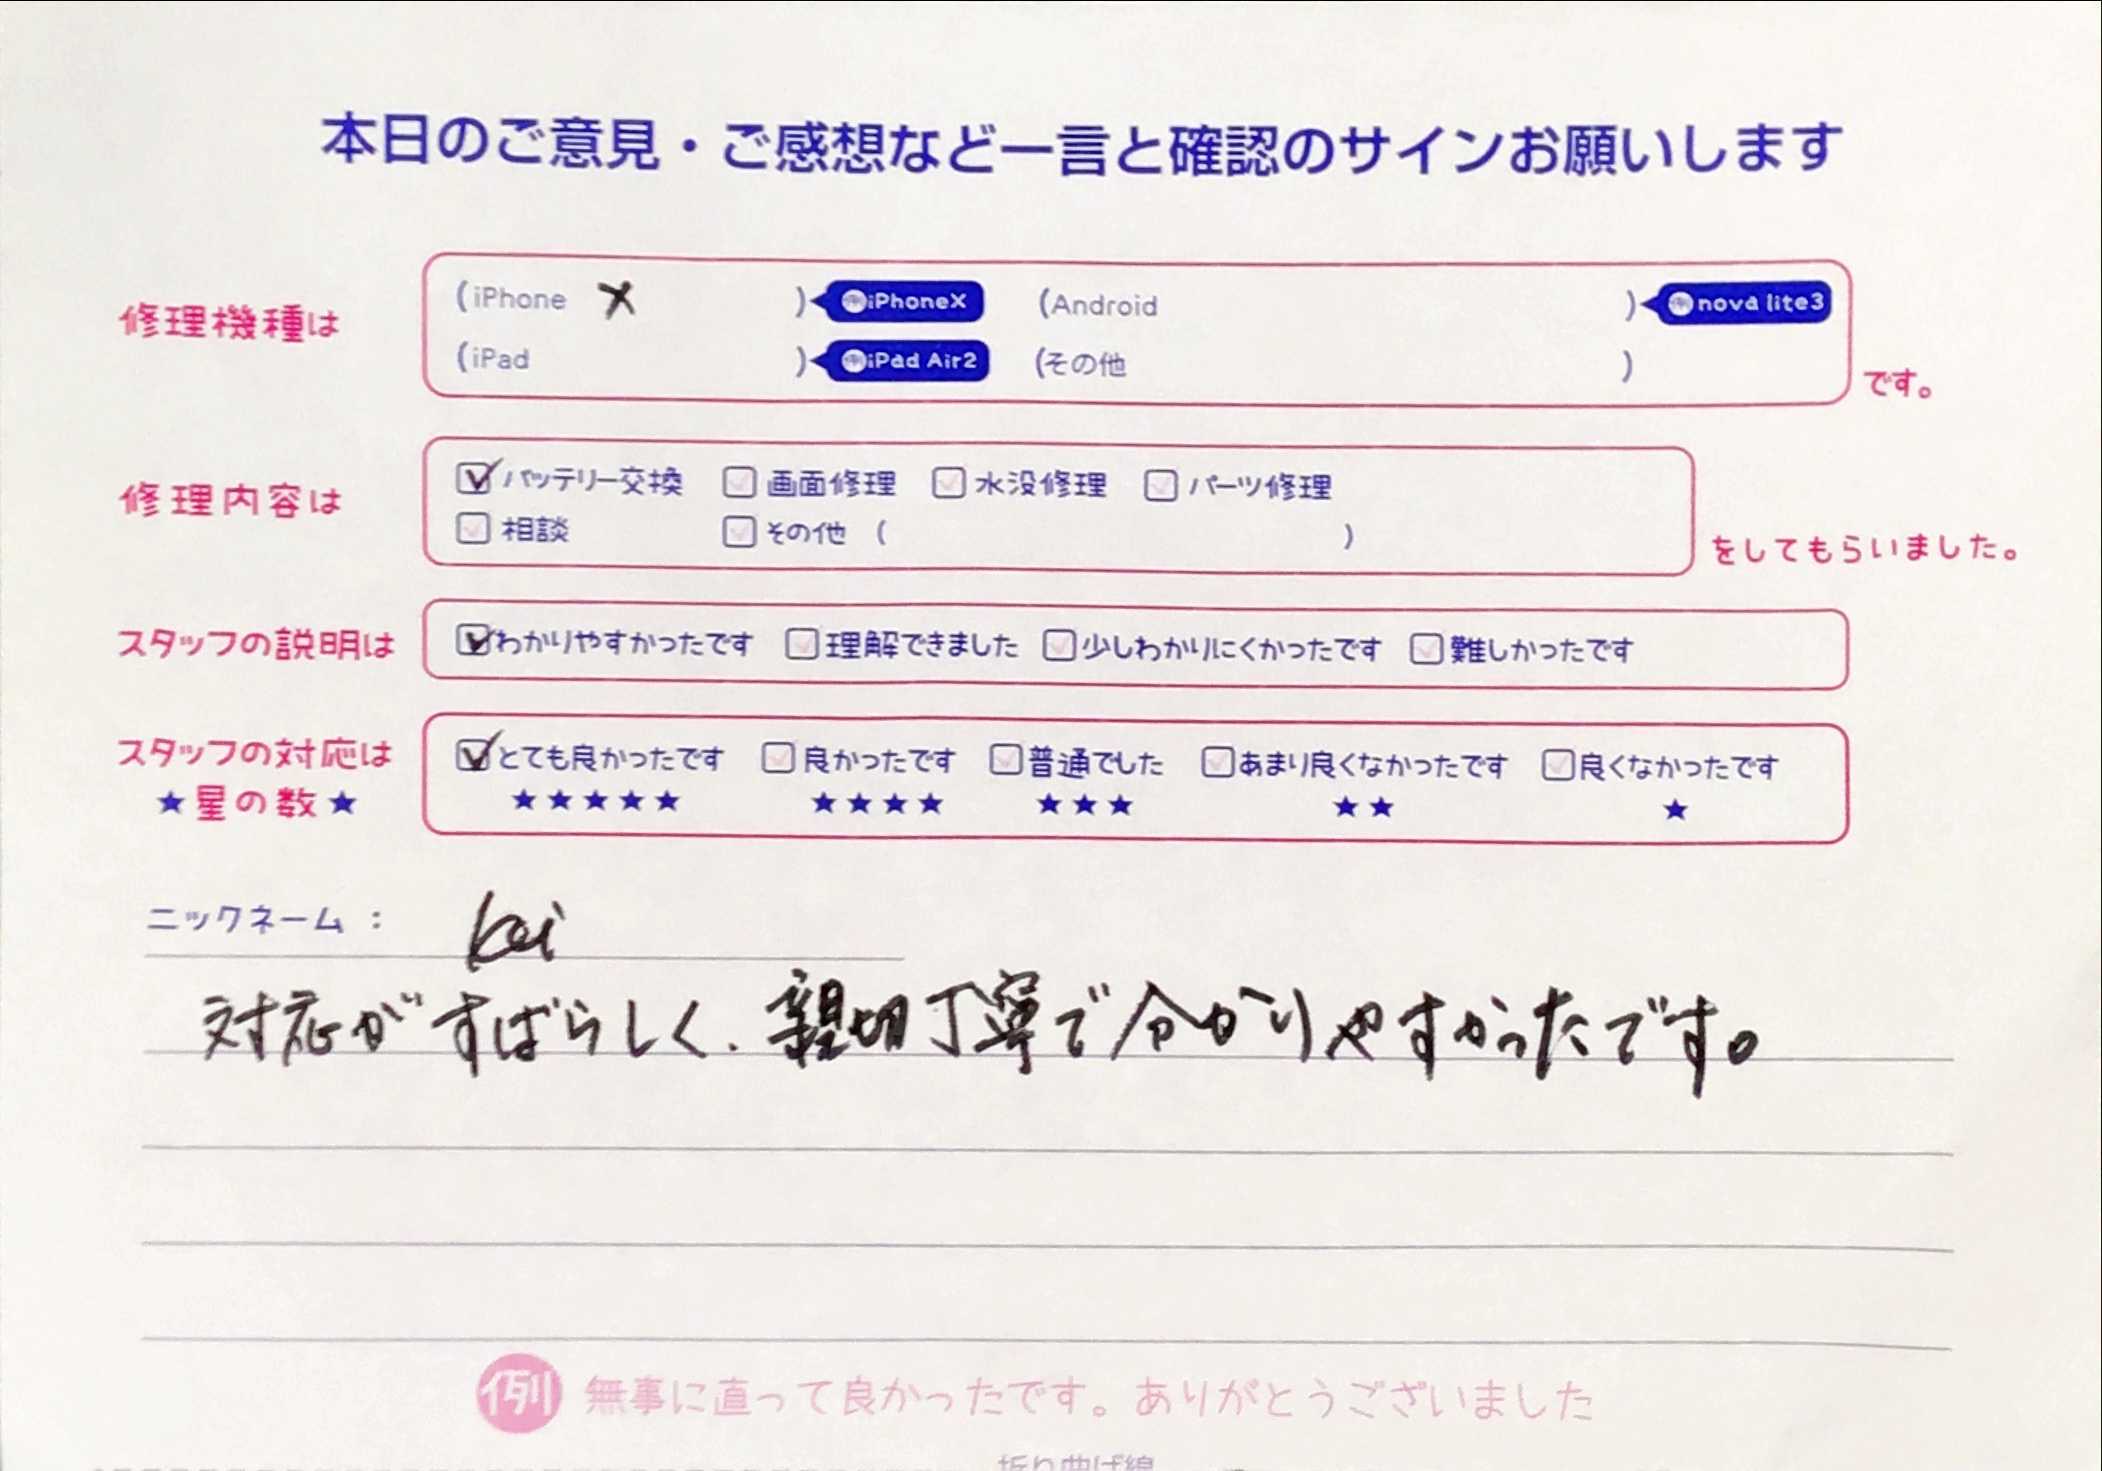 本日のご意見・ご感想など一言と確認のサインお願いします
修理機種は
(iPhone X ) 例iPhoneX (Android ) 例nova lite3
(iPad ) 例iPad Air2 (その他 )
です。
修理内容は
バッテリー交換 画面修理 水没修理 パーツ修理
相談 その他 ( )
をしてもらいました。
スタッフの説明は
わかりやすかったです 理解できました 少しわかりにくかったです 難しかったです
スタッフの対応は
★星の数★
とても良かったです 良かったです 普通でした あまり良くなかったです 良くなかったです
★★★★★ ★★★★ ★★★ ★★ ★
ニックネーム: kei
対応がすばらしく、親切丁寧で分かりやすかったです。
例 無事に直って良かったです。ありがとうございました
折り曲げ線